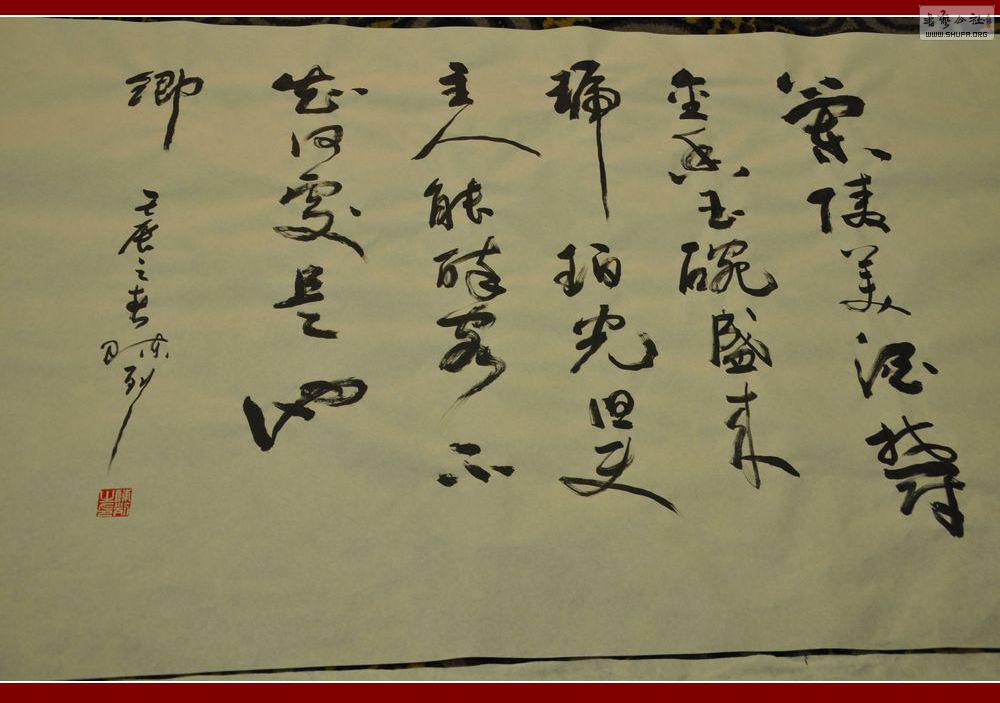 蘭陵美酒鬱
金香玉碗盛来
琥珀光但使
主人能醉客不
知何處是他
鄉
壬辰之春陈列
書藝公社
WWW.SHUFA.ORG